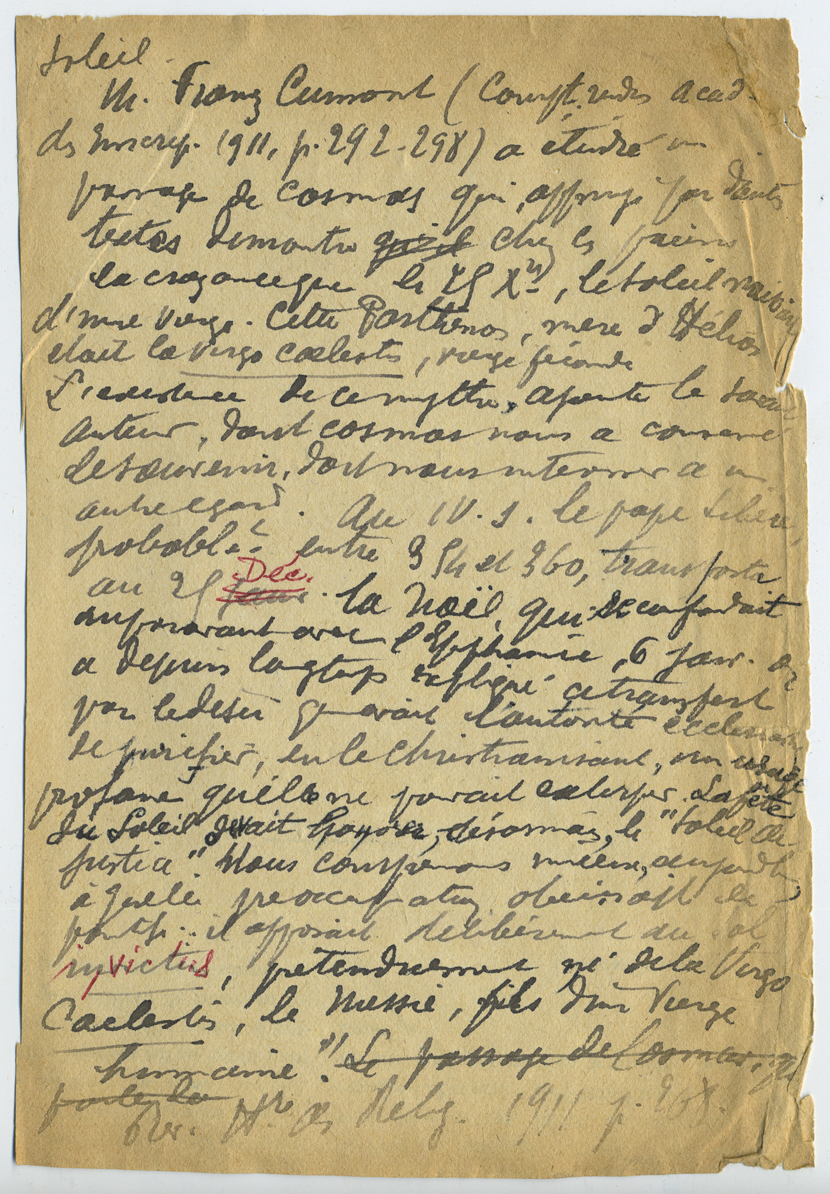 Soleil.
M. Franz Cumont (Compt. rendus Acad.
ds Inscrip. 1911, p. 292-298) a étudié un
passage de Cosmas qui, appuyé par d'autres
textes démontre qu'il chez les païens
la croyance que le 25 Xbre, le soleil naissait
d'une Vierge. Cette Parthenos, mère d'Hélios
était la Virgo Caelestis, vierge féconde
L'existence de ce mythe, ajoute le savant
auteur, dont Cosmas nous a conservé
le souvenir, doit nous intéresser à un
autre égard. Au IV. s. le pape Libère,
probablt, entre 354 et 360, transporta
au 25 Déc. la Noël, qui se confondait
auparavant avec l'Epiphanie, 6 janv. On
a depuis longtps expliqué ce transfert
par le désir qu'avait l'autorité ecclésiastique
de purifier, en le christianisant, un usage
profane qu'elle ne pouvait extirper. La fête
du Soleil devait honorer, désormais, le "Soleil de
justice". Nous comprenons mieux, aujourd'hui
à quelle préoccupation obéissait le
pontife: il opposait délibérément au Sol
invictus, prétendument né de la Virgo
Caelestis, le Messie, fils d'une Vierge
humaine". Le passage de Cosmas, qui
porte la
Rev. Hre ds Relig. 1911 p.